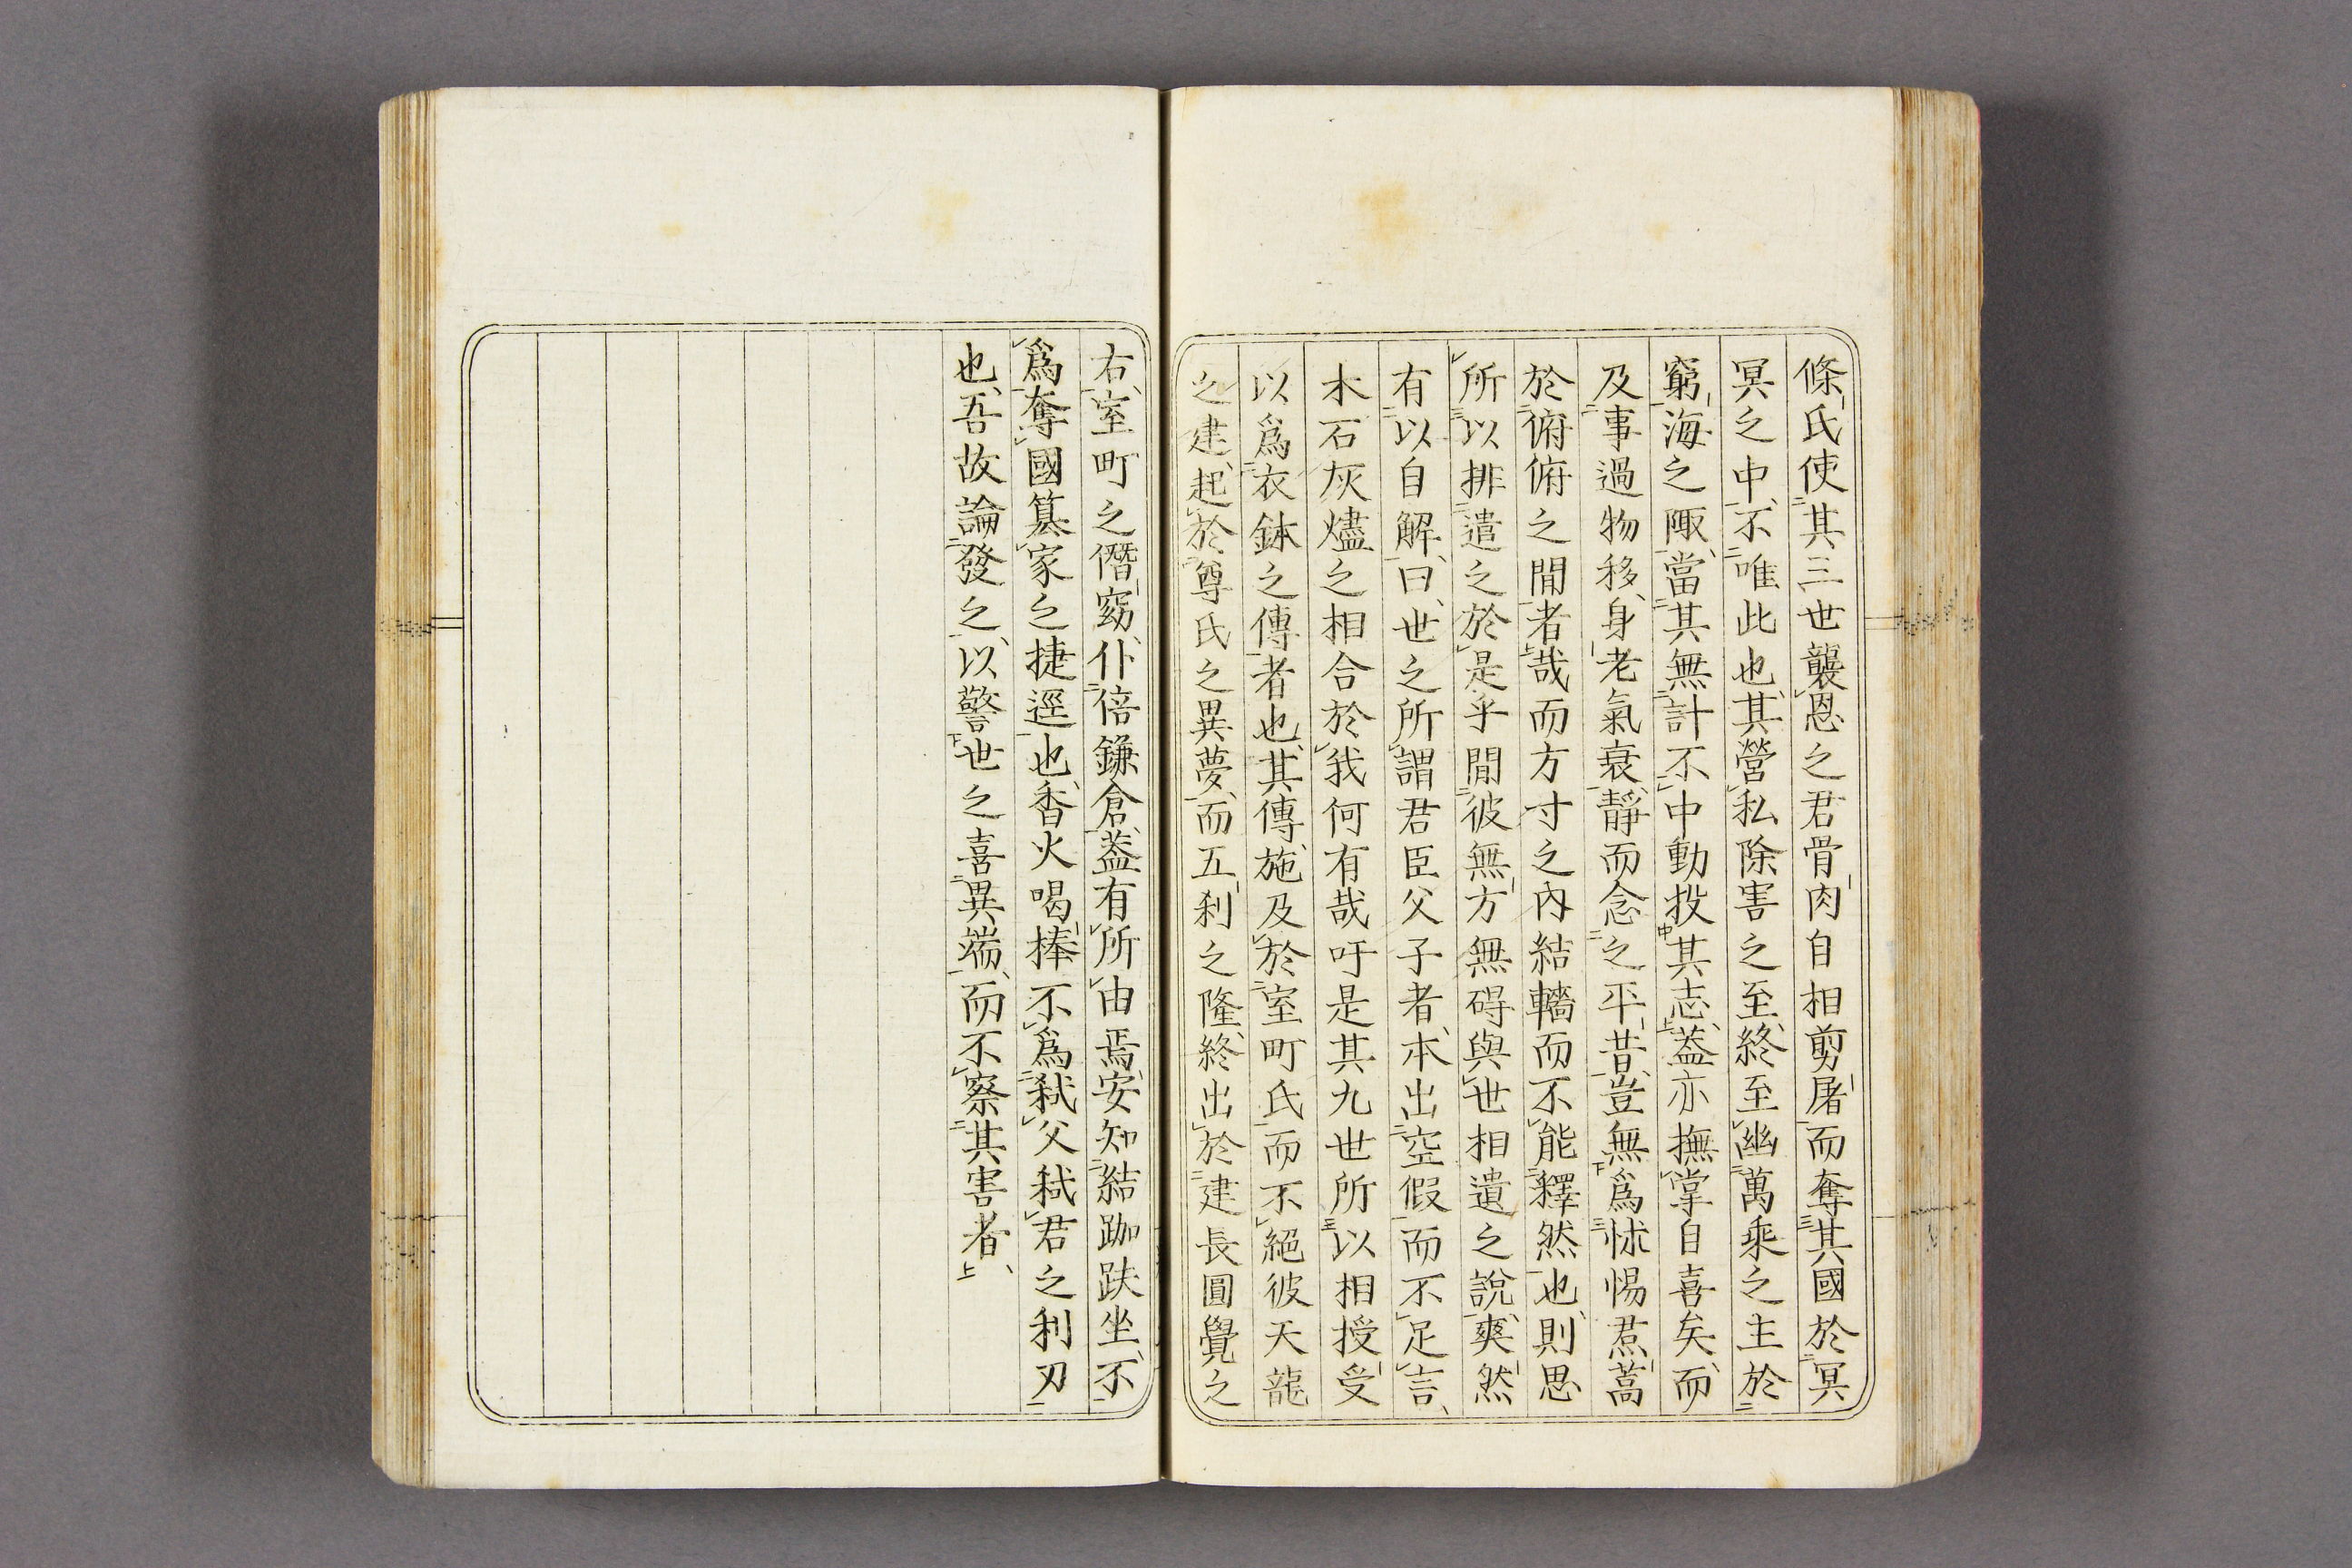 條氏使其三世襲恩之君骨肉自相剪屠而奪其國於冥
冥之中、不唯此也、其營私除害之至、終至幽萬乘之主於
窮海之陬、當其無計不中動投其志、蓋亦撫掌自喜矣、而
及事過物移、身老氣衰、靜而念之平昔、豈無爲怵惕焄蒿
於俯俯之間者哉而方寸之內結轖而不能釋然也、則思
所以排遣之於是乎聞彼無方無碍與世相遺之說、爽然
有以自解、曰、世之所謂君臣父子者、本出空假而不足言、
木石灰燼之相合於我何有哉吁是其九世所以相授受
以爲衣鉢之傳者也、其傳施及於室町氏而不絕彼天龍
之建、起於尊氏之異夢、而五刹之隆、終出於建長圓覺之
右、室町之僭竊、仆倍鎌倉、蓋有所由焉、安知結跏趺坐、不
爲奪國篡家之捷逕也、香火喝捧不爲弑父弑君之利刃
也、吾故論發之、以警世之喜異端、而不察其害者、